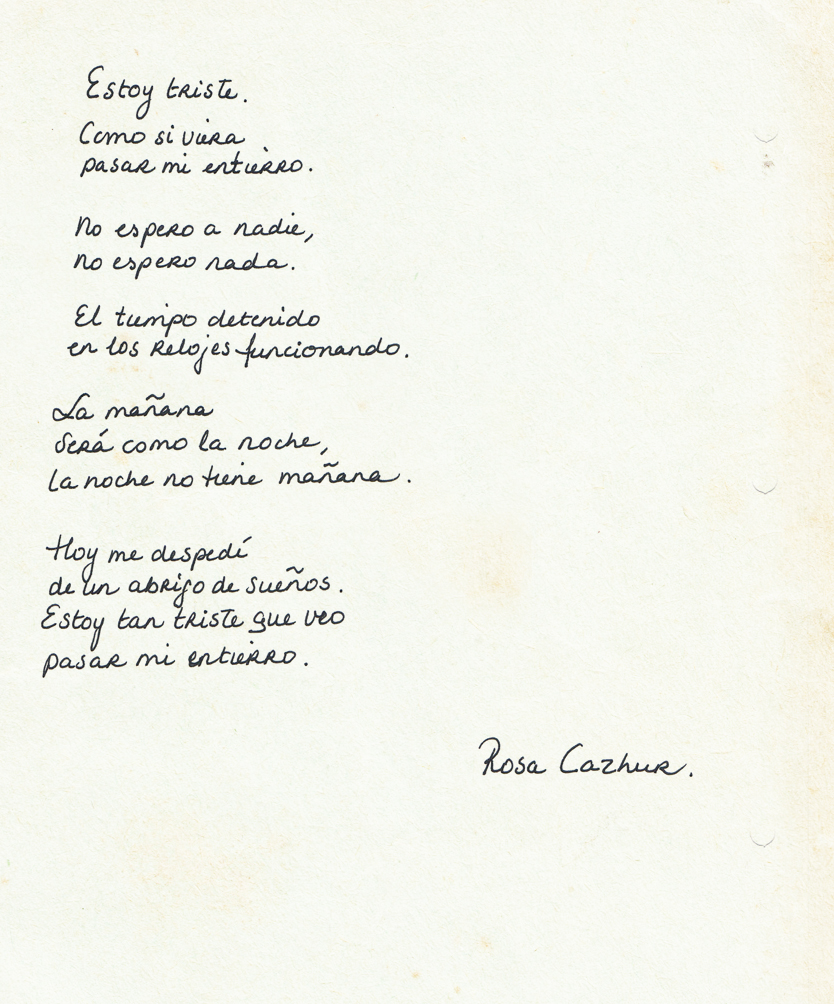 Estoy triste.
Como si viera
pasar mi entierro.
No espero a nadie,
no espero nada.
El tiempo detenido
en los relojes funcionando.
La mañana
será como la noche,
la noche no tiene mañana.
Hoy me despedí
de un abrigo de sueños.
Estoy tan triste que veo
pasar mi entierro.
Rosa Cazhur.